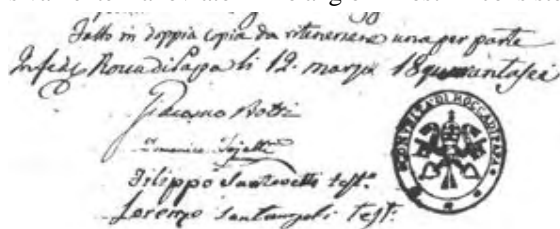 Fatto in doppia copia da ritenersene una per parte
In fede Rocca di Papa li 12. marzo 18quarantasei
Giacomo Botti
Filippo Santovetti test.°
Lorenzo Santangeli test.°
COMUNITA DI ROCCA DI PAPA